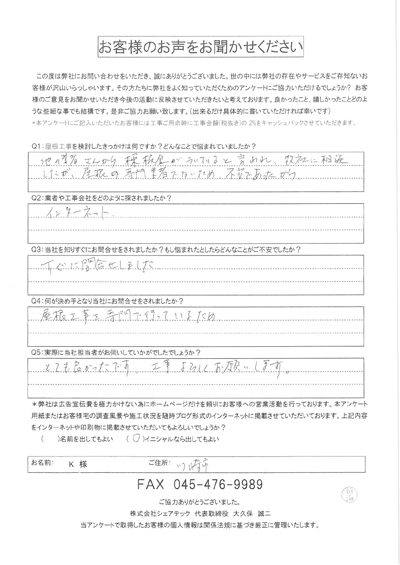 お客様のお声をお聞かせください
この度は弊社にお問い合わせをいただき、誠にありがとうございました。世の中には弊社の存在やサービスをご存知ないお
客様が沢山いらっしゃいます。その方たちに弊社をよく知っていただくためのアンケートにご協力いただけるでしょうか？ お客
様のご意見をお聞かせいただき今後の活動に反映させていただきたいと考えております。良かったこと、嬉しかったことどのよ
うな些細な事でも結構です。是非ご協力お願い致します。（出来るだけ具体的に書いていただければ幸いです）
*本アンケートにご記入いただいたお客様には工事ご用命時に工事金額(税抜き)の 2%をキャッシュバックさせていただきます。
Q1：屋根工事を検討したきっかけは何ですか？どんなことで悩まれていましたか？
他の業者さんから棟板金がういていると言われ、数社に相談
したが、屋根の専門業者でないため、不安であったから
Q2：業者や工事会社をどのように探されましたか？
インターネット
Q3：当社を知りすぐにお問合せをされましたか？もし悩まれたとしたらどんなことがご不安でしたか？
すぐに問合せしました
Q4：何が決め手となり当社にお問合せをされましたか？
屋根工事を専門で行っているため
Q5：実際に当社担当者がお伺いしていかがでしたでしょうか？
とても良かったです 工事よろしくお願いします。
＊弊社は広告宣伝費を極力かけない為にホームページだけを頼りにお客様への営業活動を行っております。本アンケート
用紙またはお客様宅の調査風景や施工状況を随時ブログ形式のインターネットに掲載させていただいております。上記内容
をインターネットや印刷物に掲載させていただいてもよろしいでしょうか？
（ ）名前を出してもよい （○）イニシャルなら出してもよい
お名前： K 様 ご住所： 川崎市
FAX 045-476-9989
ご協力ありがとうございました。
株式会社シェアテック 代表取締役 大久保 誠二
当アンケートで取得したお客様の個人情報は関係法規に基づき厳正に管理いたします。